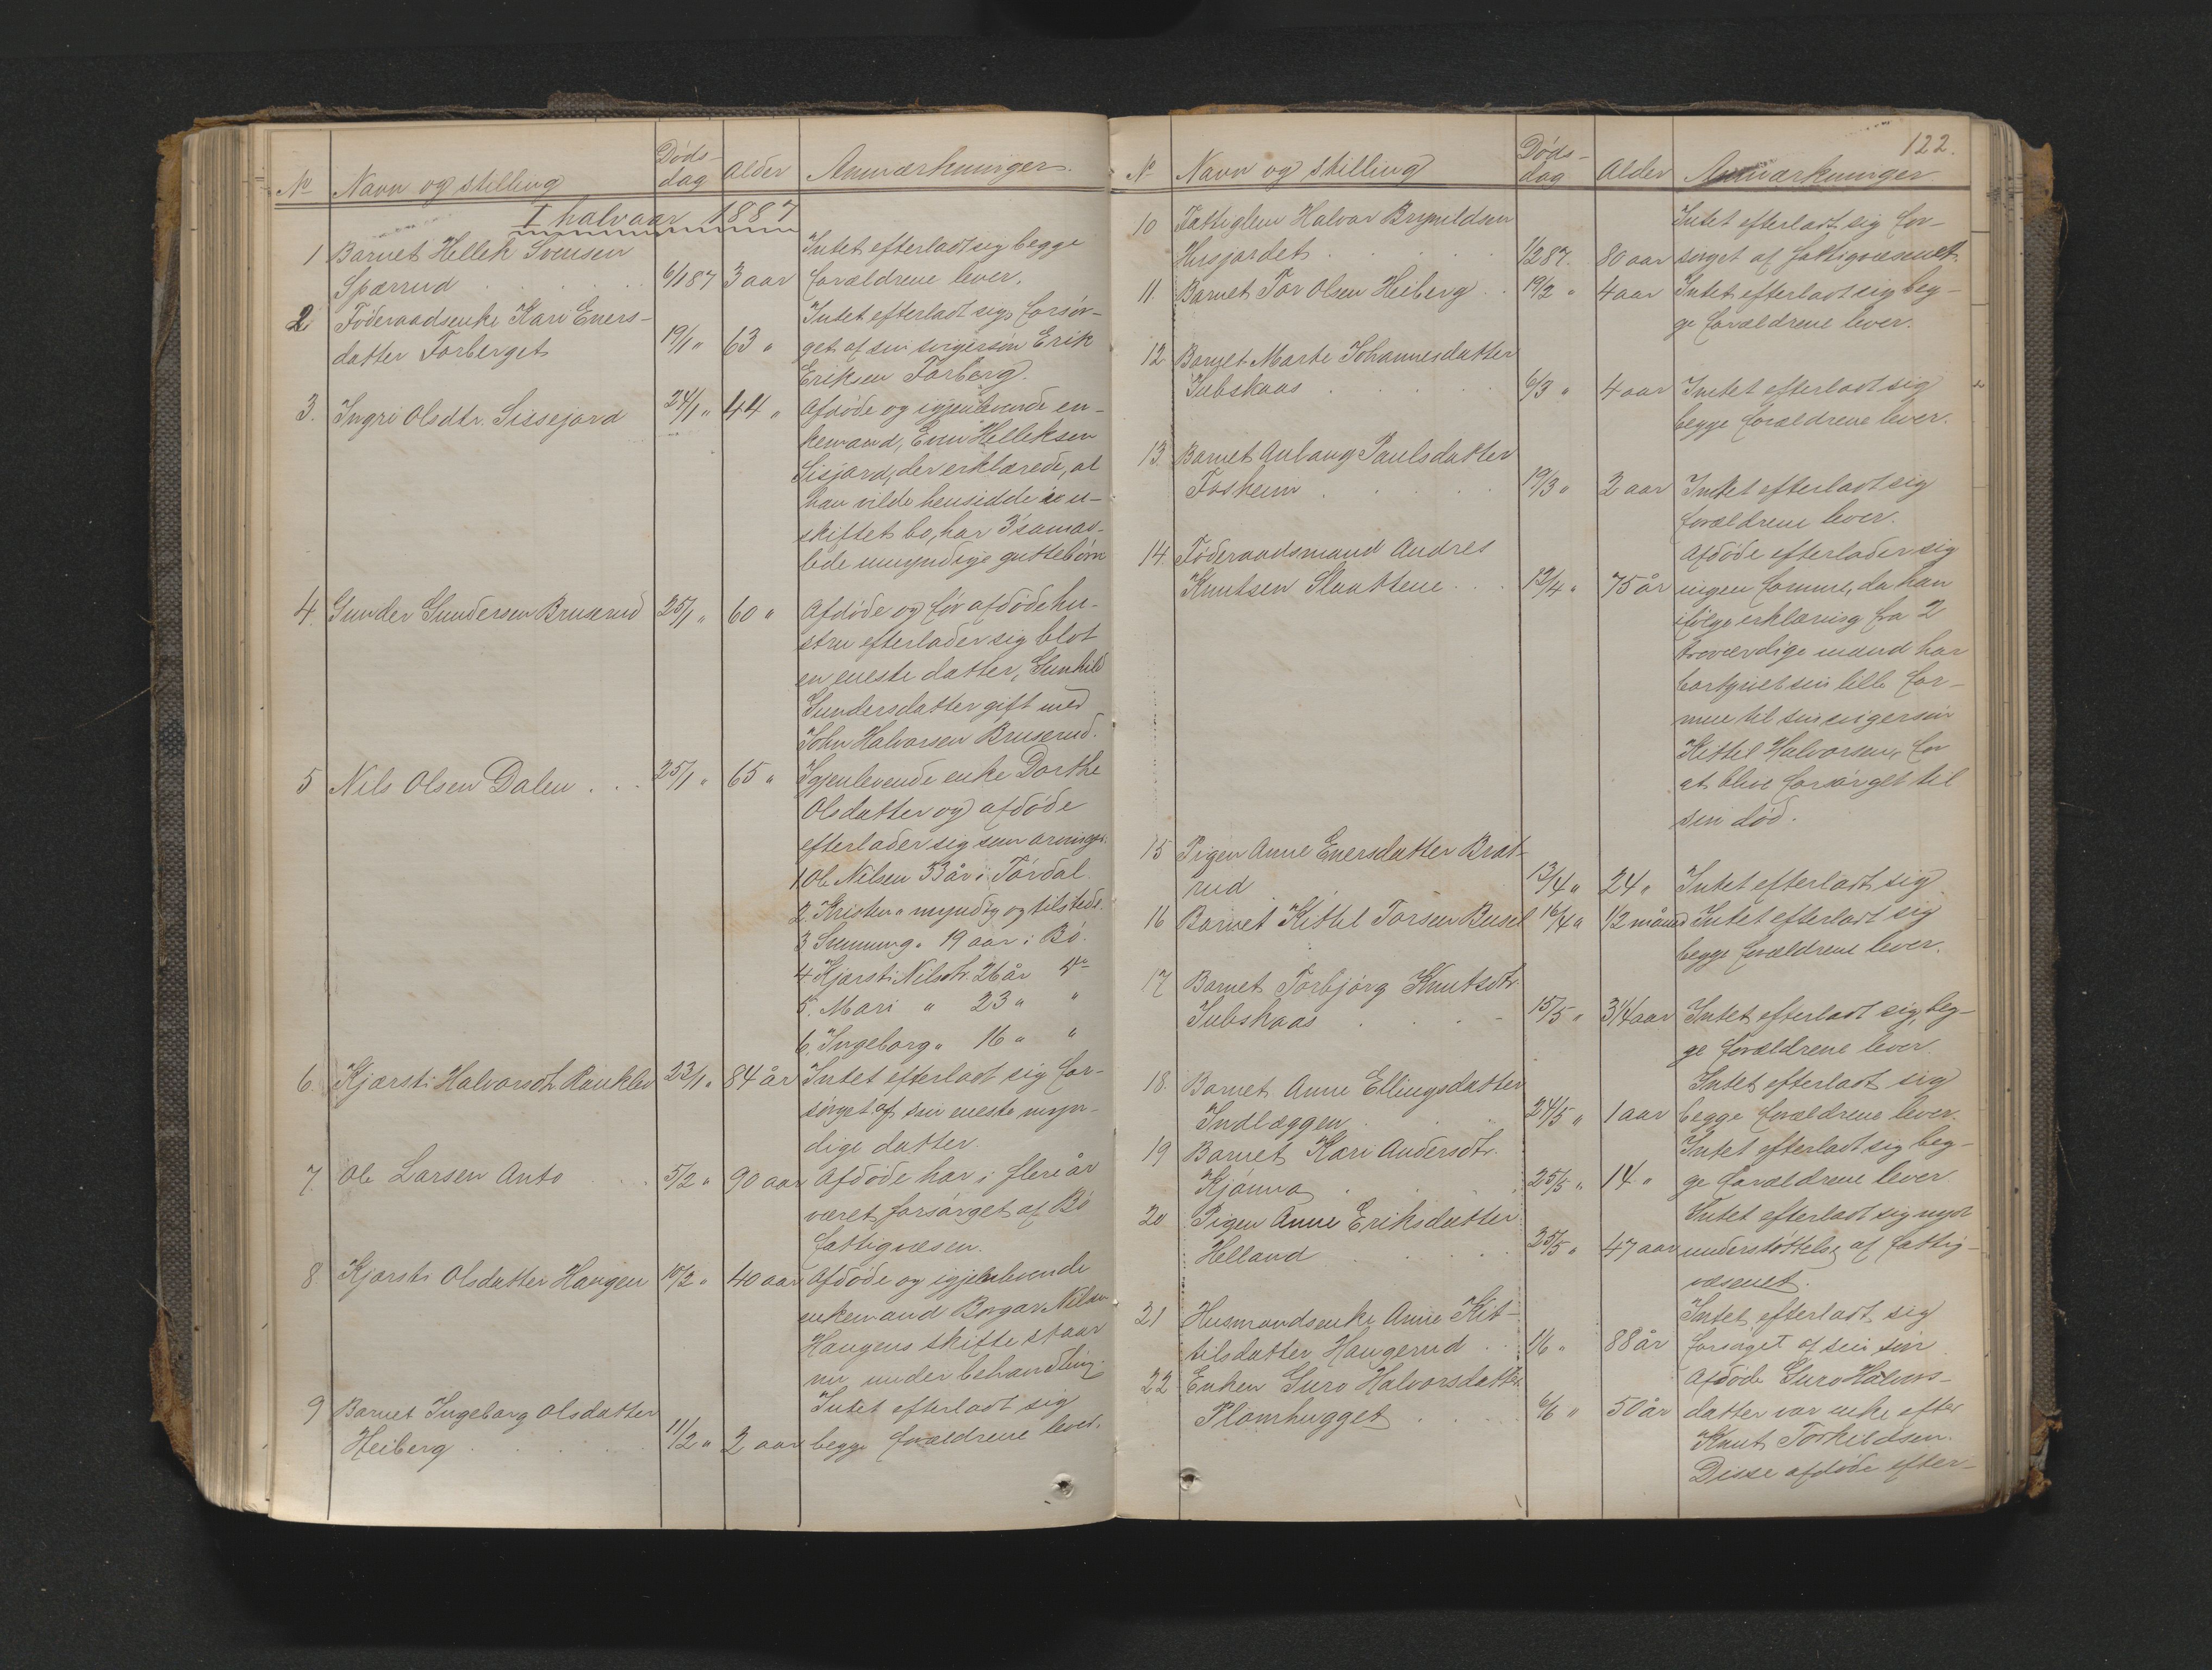 No Navn og stilling Døds-dag Alder Anmærkninger.
I halvaar 1887
1 Barnet Hellek Svensen Intet efterladt sig begge
Spærrud 6/1 87 3 aar forældrene lever.
2 Föderaadsenke Kari Eners- Intet efterladt sig, forsør-
datter Forberget 19/1 " 63 " get af sin svigersön Erik
Eriksen Forberg.
3. Ingri Olsdtr. Sissejord 24/1 " 44 " Afdöde og igjenlevende en-
kemand, Even Helleksen
Sisjord, der erklærede, at
han vilde hensidde i u-
skiftet bo, har 3 samav-
lede umyndige guttebörn
4. Gunder Gundersen Bruserud 25/1 " 60 " Afdöde og för afdöde hu-
stru efterlader sig blot
en eneste datter, Gunhild
Gundersdatter gift med
John Halvorsen Bruserud.
5 Nils Olsen Dalen . . . 25/1 " 65 " Igjenlevende enke Dorthe
Olsdatter og afdöde
efterlader sig som arvinger
1 Ole Nilsen 33 år i Tördal
2. Kristen " myndig og tilstede.
3 " 19 aar i Bö.
4 Kjersti Nilsdtr. 26 år
5. Mari " 23 " "
6. Ingeborg " 16 " "
6. Kjersti Halvorsdtr. 23/1 " 84 år Intet efterladt sig for-
sörget af sin eneste myn-
dige datter.
7. Ole Larsen Anto 5/2 " 90 aar Afdöde har i flere år
været forsörget af Bö
fattigvæsen.
8 Kjersti Olsdatter Haugen 10/2 " 40 aar Afdöde og igjenlevende
enkemand Borgar Nilsen
Haugens skifte staar
nu under behandling.
9 Barnet Ingeborg Olsdatter Intet efterladt sig
Heiberg 11/2 " 2 aar begge forældrene lever.
122.
No Navn og stilling Döds-dag Alder Anmærkninger.
10 Fattiglem Halvor Brynildsen Intet efterladt sig for-
Husjordet 1/2 87. 80 aar sörget af fattigvæsenet.
11. Barnet Tor Olsen Heiberg . . 19/2 " 4 aar Intet efterladt sig beg-
ge forældrene lever.
12 Barnet Marte Johannesdatter
Jubskaas 6/3 " 4 aar Intet efterladt sig
begge forældrene lever.
13. Barnet Aslaug Paulsdatter
Forsheim 19/3 " 2 aar Intet efterladt sig
forældrene lever.
14. Föderaadsmand Andres Afdöde efterlader sig
Knutsen Slaattene . . . 12/4 " 75 år ingen formue, da han
ifölge erklæring fra 2
troværdige mænd har
bortgivet sin lille for-
mue til sin svigersön
Kittel Halvorsen, for
at blive forsörget til
sin död.
15 Pigen Anne Enersdatter Brat-
rud 13/4 " 24 " Intet efterladt sig
16 Barnet Kittel Torsen 16/4 " 1/2 måned Intet efterladt sig
begge forældrene lever.
17 Barnet Torbjörg Knutsdtr.
Jubskaas 15/5 " 3 1/4 aar Intet efterladt sig, beg-
ge forældrene lever.
18. Barnet Anne Ellingsdatter Intet efterladt sig
Indlæggen 24/5 " 1 aar begge forældrene lever.
19 Barnet Kari Andersdtr. Intet efterladt sig beg-
Kjönna 25/5 " 14 " ge forældrene lever
20 Pigen Anne Eriksdatter Intet efterladt sig nydt
Helland 25/5 " 47 aar understöttelse af fattig-
væsenet.
21 Husmandsenke Anne Kit- Intet efterladt sig
tilsdatter Haugerud . . 1/6 " 88 år forsörget af sin sön
22 Enken Guro Halvorsdatter Afdöde Guro Halvors-
Plomhugget 6/6 " 50 år datter var enke efter
Knut Torkildsen.
Disse afdöde efter-